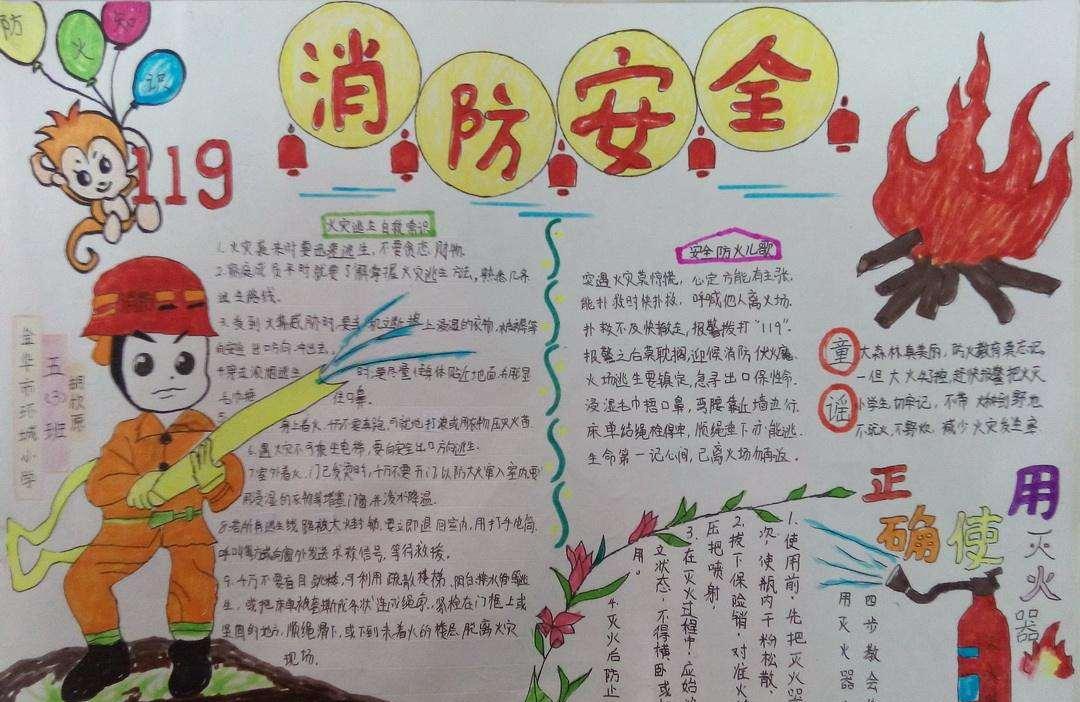 防火知识
消防安全
119
金华市环城小学
五(3)班
胡欣原
火灾逃生自救常识
1.火灾袭来时要迅速逃生,不要贪恋财物。
2.家庭成员平时就要了解掌握火灾逃生方法,熟悉几条
逃生路线。
向安全出口方向冲出去。
4.穿过浓烟逃生 时,要尽量使身体贴近地面,并用湿
毛巾捂 住口鼻。
身上着火,千万不要奔跑,可就地打滚或用厚衣物压灭火苗。
6.遇火灾不可乘坐电梯,要向安全出口方向逃生。
7.室外着火,门已发烫时,千万不要开门,以防大火窜入室内,要
用浸湿的衣物等堵塞门窗,并泼水降温。
8.若所有逃生线路被大火封锁,要立即退回室内,用打手电筒
等方式向窗外发送求救信号,等待救援。
9.千万不要盲目跳楼,可利用疏散楼梯,阳台
生,或把床单被套撕成条状连成绳索,紧拴在门框上或
坚固的地方,顺绳滑下,或下到未着火的楼层,脱离火灾
现场。
安全防火儿歌
突遇火灾莫惊慌,心定方能有主张。
能扑救时快扑救,呼喊他人离火场。
扑救不及快撤走,报警拨打“119”。
报警之后莫耽搁,迎候消防伏火魔。
火场逃生要镇定,急寻出口保性命。
浸湿毛巾捂口鼻,弯腰靠近墙边行。
床单结绳拴得牢,顺绳垂下亦能逃。
生命第一记心间,已离火场勿再返。
童谣
大森林真美丽,防火教育莫忘记。
一但大火,赶快报警把火灭
小学生切牢记,不带火种到野地
不玩火,不野炊,减少火灾发生率
正确使用灭火器
四步教会
用灭火器
1.使用前,先把灭火器
次,使瓶内干粉松散,
2.拔下保险销,对准火
压把喷射,
3.在灭火过程中,应始
立状态,不得横卧或
用。
4.灭火后防止